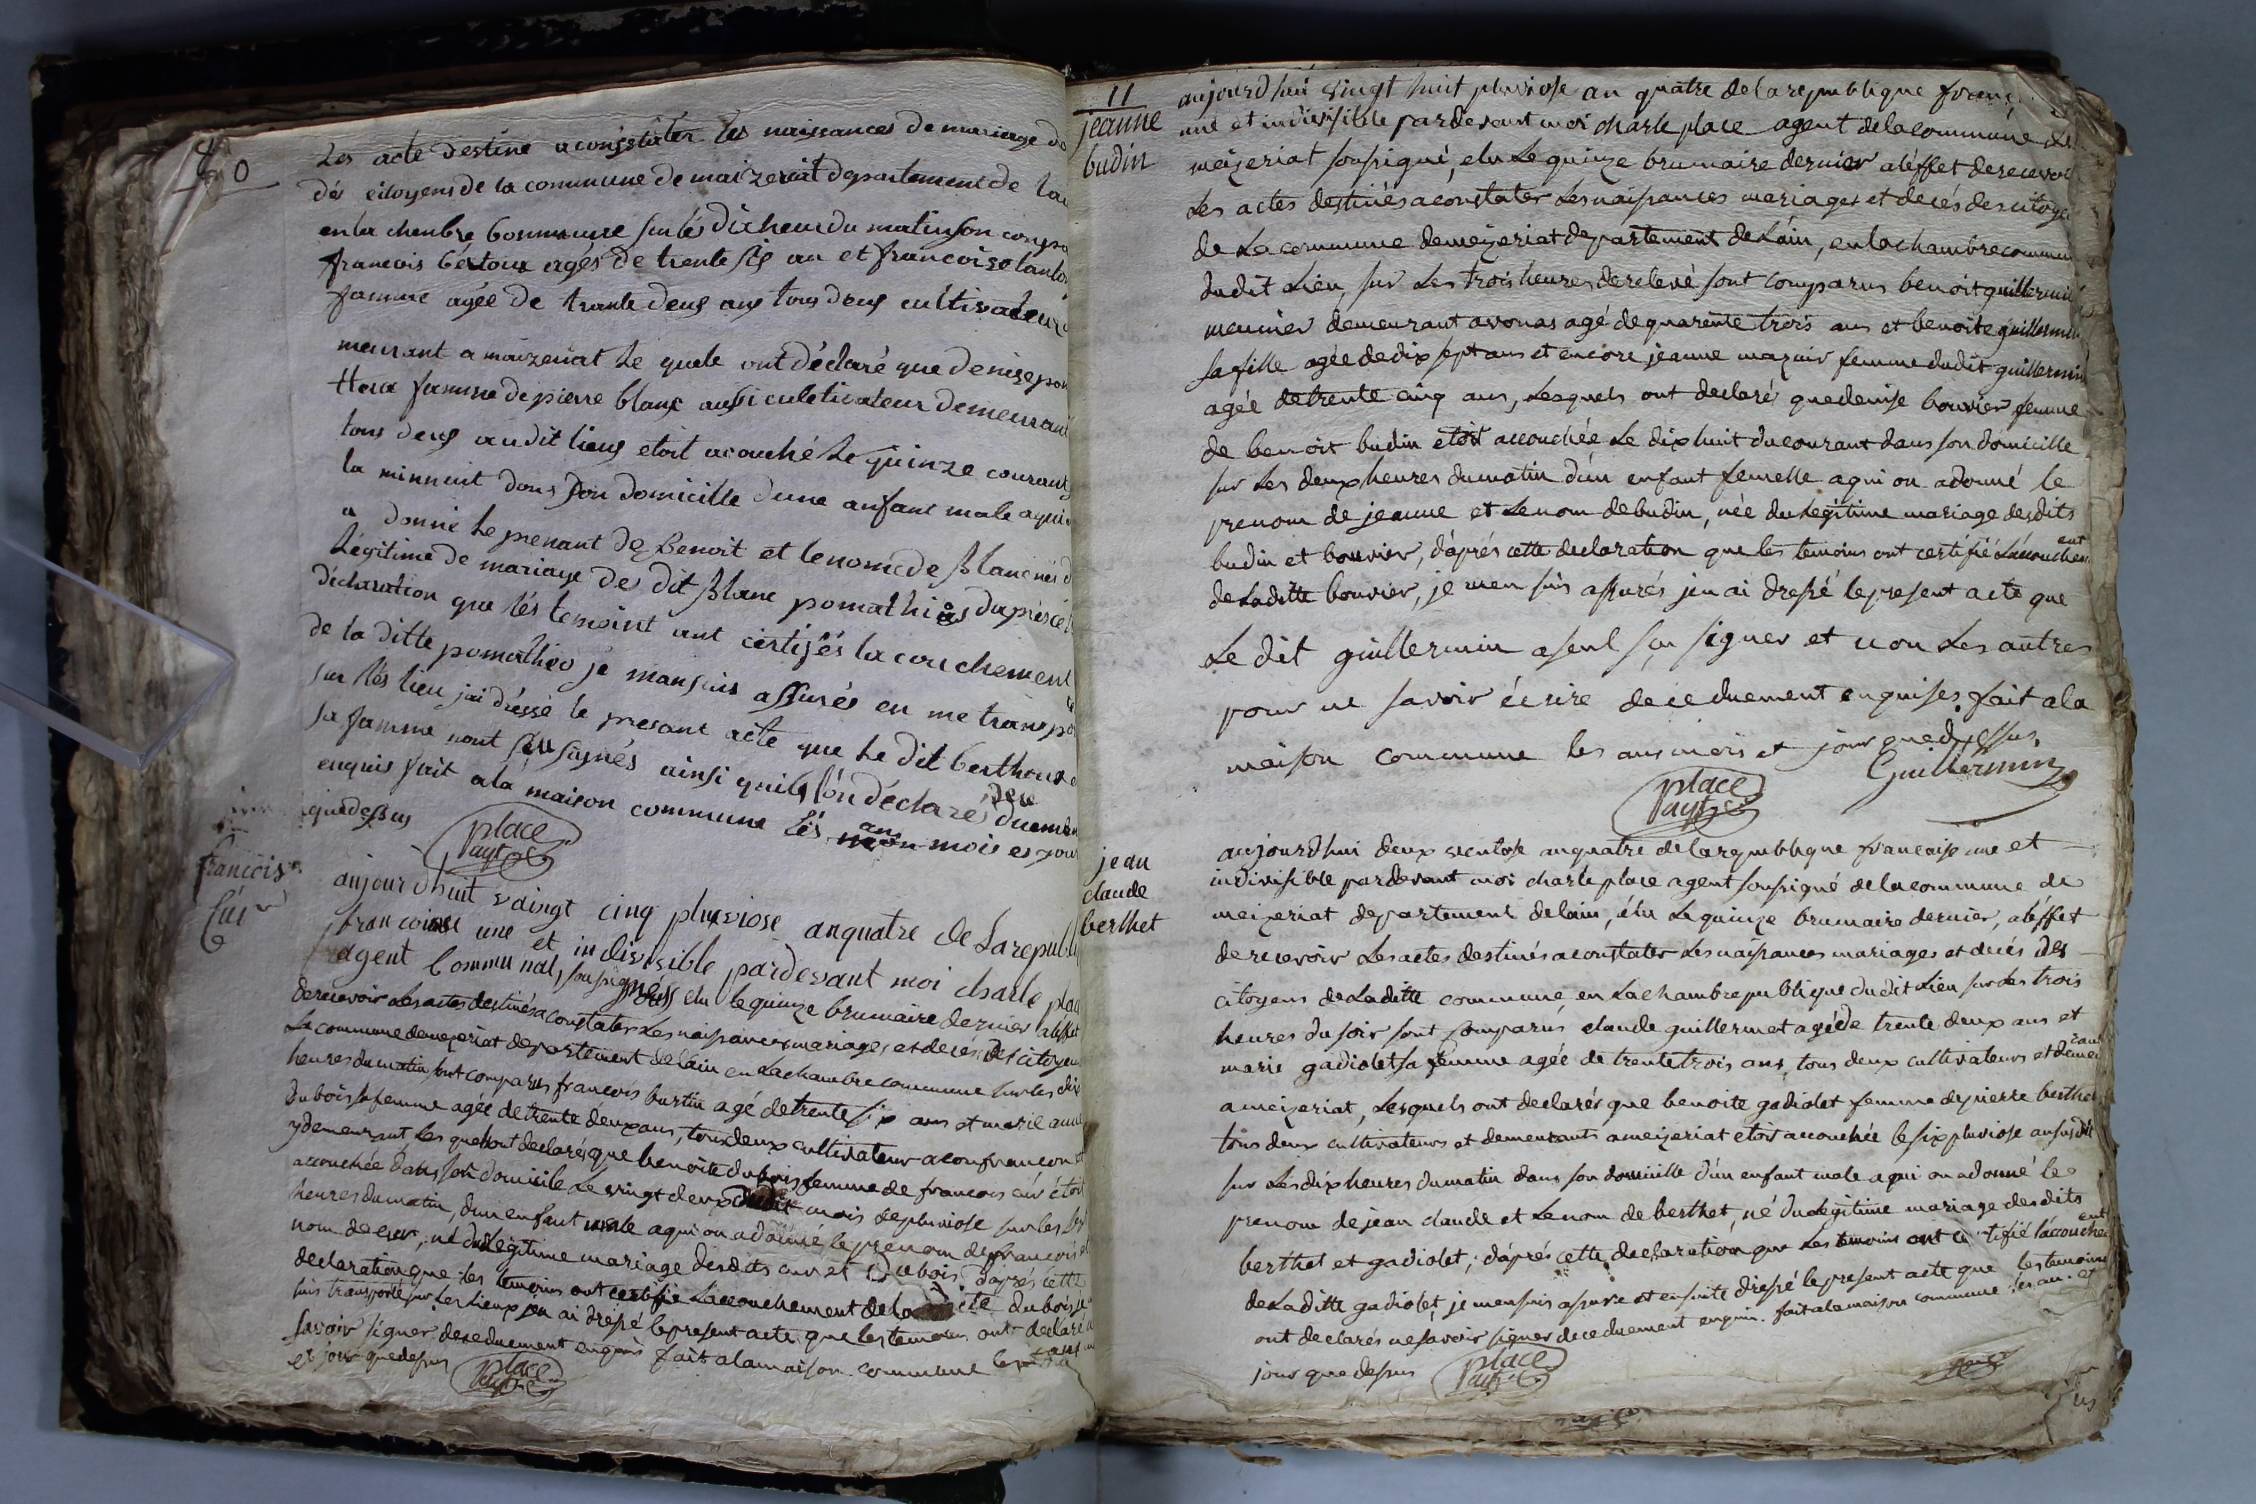 Les acte destiné a constater les naissances de mariage de
dés citoyens de la commune de maizeriat departement de la
en la chenbre bommune sur lés dix heur du matin son conpa
francois bértoux agés de trente six an et francoise
famme agée de trante deux ans tous deux cultivateur
meurant a maizeriat le quele ont déclaré que denise pom
theux famme de pierre blanc ausi culetivateur demeurant
tous deux audit lieux etoit acouché le quinze courant
la minnuit dans son domicille d'une anfant male aqui
a donné le prenant de Benoit et le nome de Blanc né d
légitime de mariage de dit Blanc pomathios daprés ce
déclaration que lés temoint ont certifiés la couchement
de la ditte pomatheo je man suis assurés en me transpo
sur lés lieu jai dréssé le presant acte que le dit berthoux e
sa famme nont seu signés ainsi quils lon déclaré de ce duemen
enquis fait ala maison commune lés an mois et jour
que dessus
place
aygt
francois
cur
aujourdhuit vaingt cinq pluviose an quatre de La republi
francoise une et indivisible pardevant moi charle place
agent Communal, sousignes elu le quinze brumaire dernier a léffet
de recevoir Les actes destinés a constater Les naissances mariages et decés des citoyens
La commune de meyzeriat departement de Lain en La chambre commune sur les dix
heures du matin sont comparus francois burtin agé de trente six ans et marie anne
dubois sa femme agée de trente deux ans, tous deux cultivateur a confrancon et
y demeurant, Les quels ont declarés que benoite dubois femme de francois cur étoit
accouchée dans son domicile Le vingt deux dudit mois de pluviose sur les six
heures du matin, dun enfant male a qui on a donné le prenom de francois et
nom de cur, né du Légitime mariage desdits cur et dubois, d'aprés cette
declaration que les temoins ont certifié Laccouchement de la ditte dubois je
suis transporté sur Les Lieux jen ai dressé le present acte que les temoins ont declaré
savoir signer de ce duement enquis fait a la maison commune les ans
et jour que dessus
place
aygt
11
jeanne
budin
aujourdhui vingt huit pluviose an quatre de la republique franç
une et indivisible pardevant moi charle place agent de la commune de
meyzeriat soussigné, elu Le quinze brumaire dernier a léffet de recevoir
Les actes destinés a constater Les naissances mariages et decés des citoye
de La commune de meyzeriat departement de Lain, en la chambre commun
dudit Lieu, sur Les trois heures de relevé sont comparus benoit guillermin
meunier demeurant a vonas agé de quarente trois ans et benoite guillermin
sa fille agée de dix sept ans et encore jeanne mazuir femme dudit guillermin
agée de trente cinq ans, Lesquels ont declaré que denise bouvier femme
de benoit budin étoit accouchée Le dix huit du courant dans son domicille
sur Les deux heures du matin d'un enfant femelle a qui on a donné le
prenom de jeanne et Le nom de budin, née du Légitime mariage desdits
budin et bouvier, d'aprés cette declaration que les temoins ont certifié Laccouchement
de Laditte bouvier, je men suis assurés jen ai dressé le present acte que
Le dit guillermin a seul sçu signer et non Les autres
pour ne savoir écrire de ce duement enquises. fait a la
maison commune les ans mois et jour que dessus,
place
aygt
Guillermin
jean
claude
berthet
aujourdhui deux ventose an quatre de la republique francaise une et
indivisible pardevant moi charle place agent sousigné de la commune de
meizeriat departement de lain, élu Le quinze brumaire dernier, a léffet
de recevoir Les actes destinés a constater Les naissances mariages et decés des
citoyens de Laditte commune en La chambre publique dudit Lieu sur Les trois
heures du soir sont comparus claude guillermet agé de trente deux ans et
marie gadiolet sa femme agée de trente trois ans, tous deux cultivateurs et demeurans
a meizeriat, Lesquels ont declarés que benoite gadiolet femme de pierre berthet
tous deux cultivateurs et demeurants a meizeriat étois accouchée le six pluviose an susdit
sur Les dix heures du matin dans son domicille d'un enfant male a qui on a donné le
prenom de jean claude et Le nom de berthet, né du Légitime mariage desdits
berthet et gadiolet; d'aprés cette declaration que Les temoins ont certifié láccouchement
de Laditte gadiolet, je men suis assure et ensuite dressé le present acte que les temoins
ont declarés ne savoir signer de ce duement enquis. fait a la maison commune les an. et
jour que dessus
place
aygt